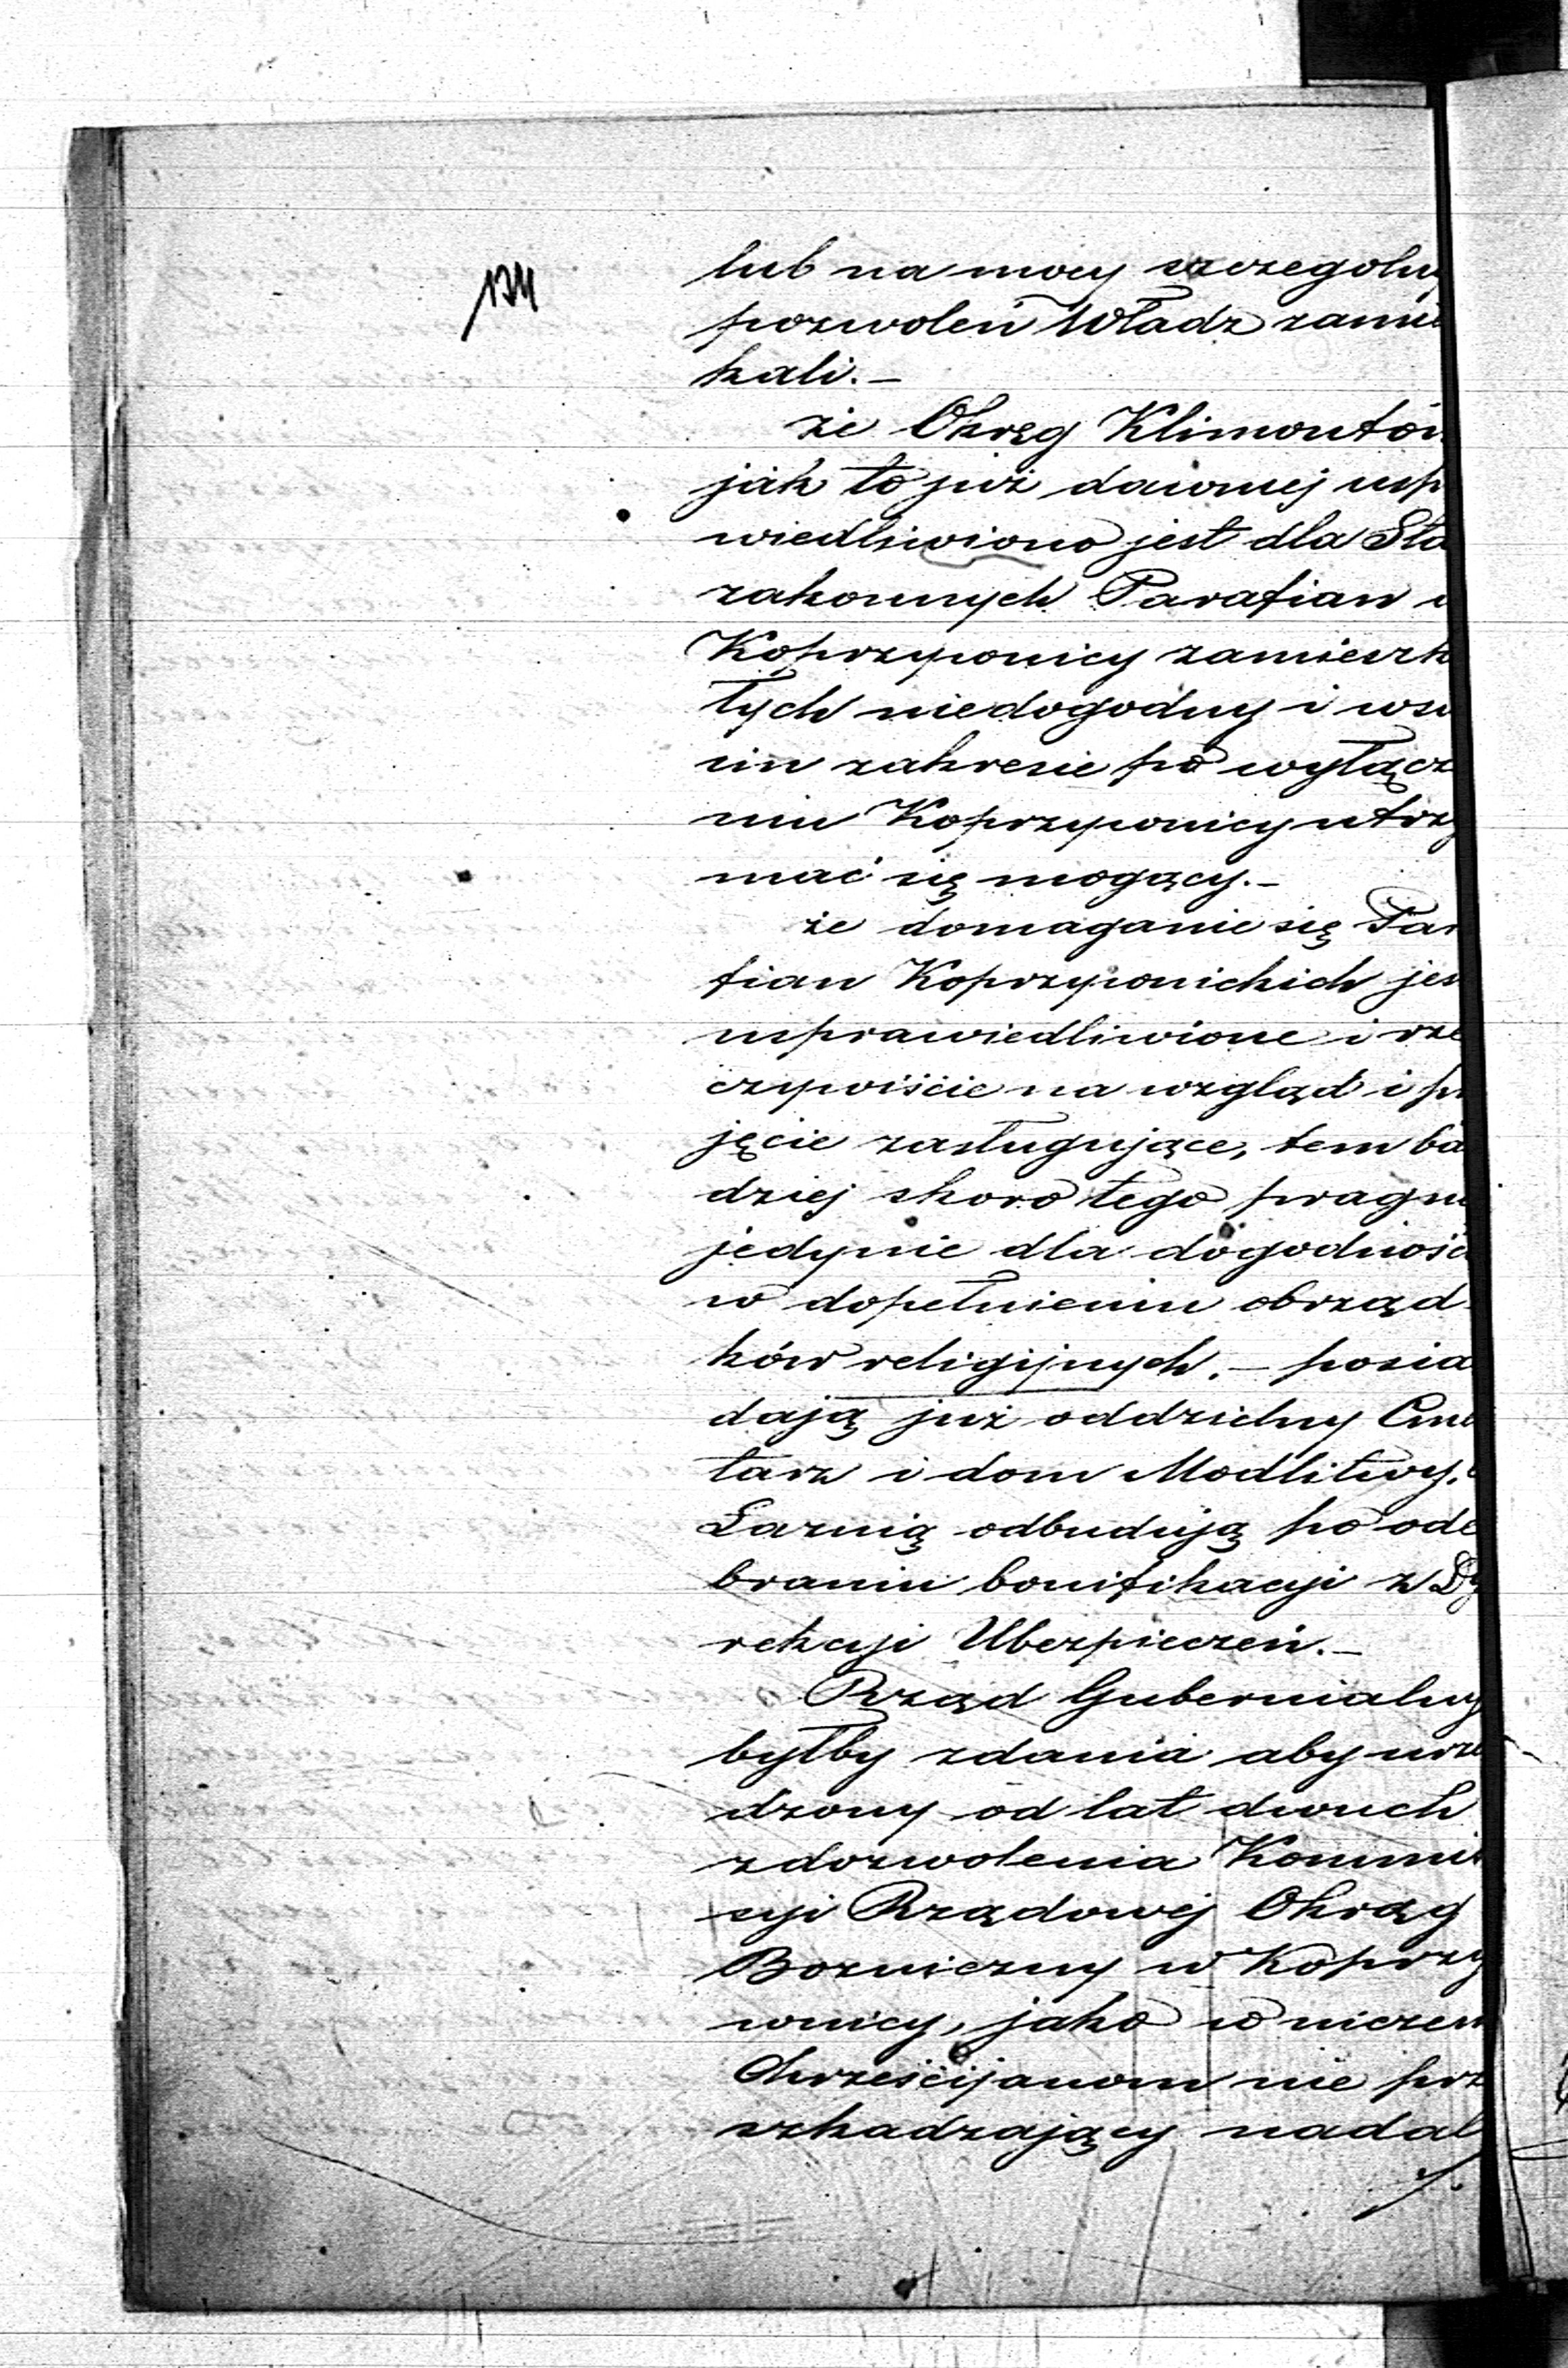 134
lub na mocy szczegolny
pozwoleń Władz zamie
kali.–
że Okręg Klimontów
jak to już dawniej uspr
wiedliwiono jest dla Sta
zakonnych Parafian w
Koprzywnicy zamieszk
łych niedogodny i wsw
im zakresie po wyłącz
niu Koprzywnicy utrzy
mać się mogący.–
że domaganie się Par
fian Koprzywnickich jes
usprawiedliwione i rze
czywiście na wzgląd i pr
jęcie zasługujące, tem ba
dziej skoro tego pragn
jedynie dla dogodnośc
w dopełnieniu obrząd
ków religijnych.– posia
dają już oddzielny Cme
tarz i dom Modlitwy.
Łaznią odbudują po ode
braniu bonifikacyi z Dy
rekcyi Ubezpieczeń.–
Rząd Gubernialny
byłby zdania aby urzą
dzony od lat dwuch
z dozwolenia Kommis
syi Rządowej Okrąg
Bozniczny w Koprzy
wnicy, jako w niczem
Chrześcijanom nie prz
szkadzający nadal